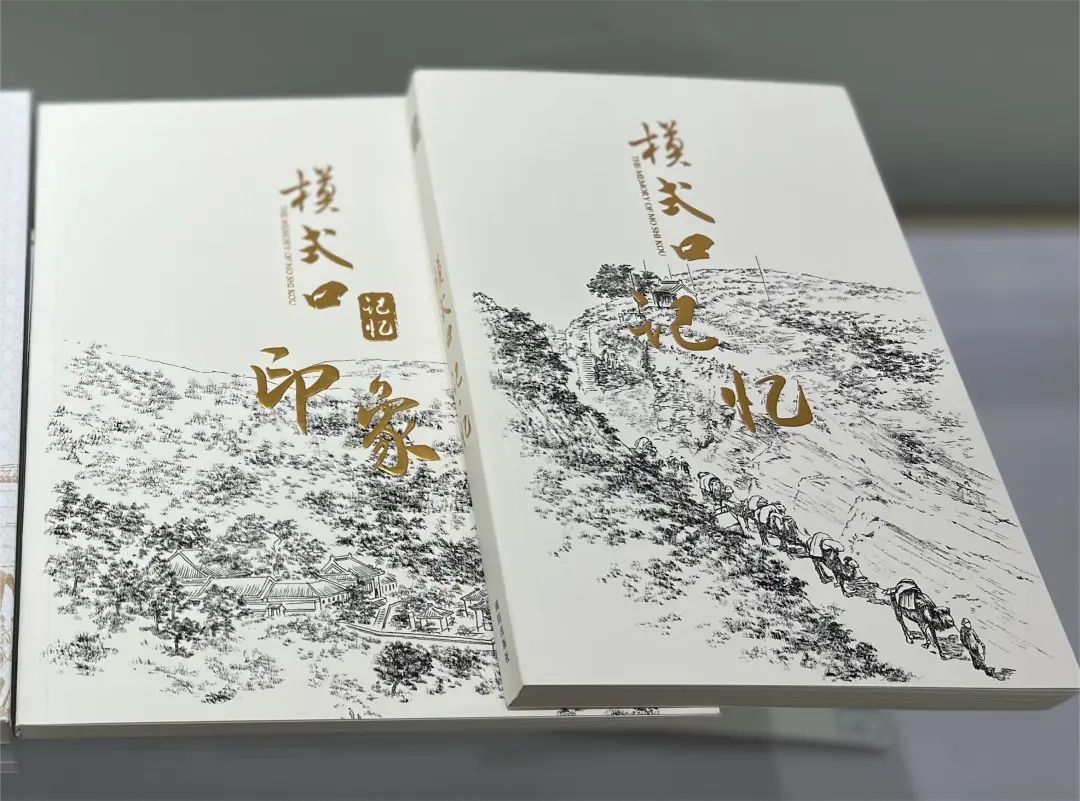 模式口
THE MEMORY OF MO SHI KOU
记忆
印象
模式口
THE MEMORY OF MO SHI KOU
记忆
模式口记忆